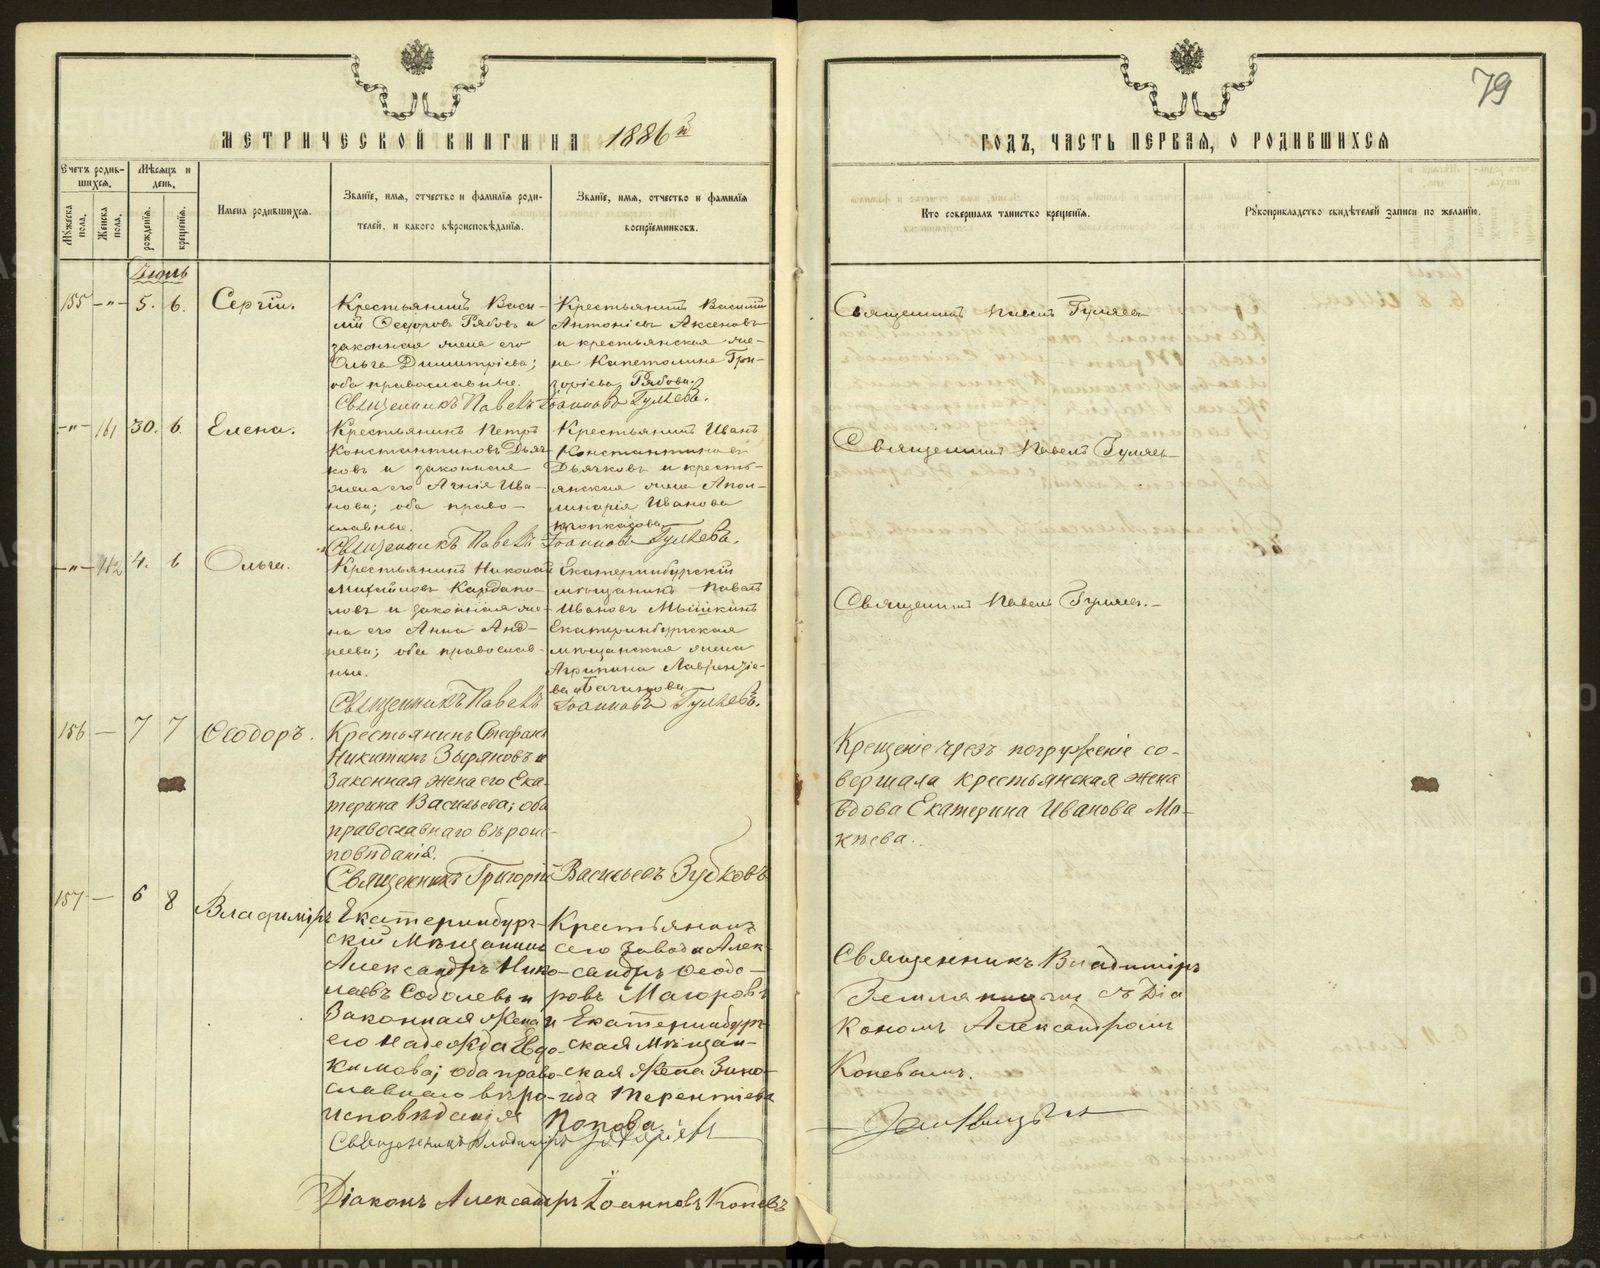 79
МЕТРИЧЕСКОЙ КНИГИ НА 1886й
ГОДЪ, ЧАСТЬ ПЕРВАЯ, О РОДИВШИХСЯ
Счетъ родив-
шихся.
Мѣсяцъ и
день.
Мужеска
пола.
Женска
пола.
рожденія.
крещенія.
Имена родившихся.
Званіе, имя, отчество и фамилія роди-
телей, и какого вѣроисповѣданія.
Званіе, имя, отчество и фамилія
воспріемниковъ.
Кто совершалъ таинство крещенія.
Рукоприкладство свидѣтелей записи по желанію.
155 -"- 5. 6. Сергій.
Крестьянинъ Васи-
лій Ѳедоровъ Рябовъ и
законная жена его
Ольга Димитріева;
оба православные.
Крестьянинъ Василій
Антоніевъ Аксеновъ
и крестьянская же-
на Капетолина Гри-
горіева Рябова.
Священникъ Павелъ Іоанновъ Гуляевъ.
Священникъ Павелъ Гуляевъ
-"- 161 30. 6. Елена.
Крестьянинъ Петръ
Константиновъ Дьяч-
ковъ и законная
жена его Агнія Ива-
нова; оба право-
славные.
Крестьянинъ Иванъ
Константиновъ
Дьячковъ и кресть-
янская жена Апол-
линарія Иванова
Священникъ Павелъ Іоанновъ Гуляевъ.
Священникъ Павелъ Гуляевъ
-"- 162 4. 6 Ольга.
Крестьянинъ Николай
Михайловъ Кардапо-
ловъ и законная же-
на его Анна Анд-
реева; оба православ-
ные.
Екатеринбургскій
мѣщанинъ Павелъ
Ивановъ Мышкинъ
Екатеринбургская
мѣщанская жена
Агрипина Лаврентіе-
ва
Священникъ Павелъ Іоанновъ Гуляевъ.
Священникъ Павелъ Гуляевъ.
156 — 7 7 Ѳеодоръ.
Крестьянинъ Стефанъ
Никитинъ Зыряновъ и
законная жена его Ека-
терина Васильева; оба
православнаго вѣроис-
повѣданія.
Священникъ Григорій Васильевъ Зубковъ
Крещеніе чрезъ погруженіе со-
вершала крестьянская жена
вдова Екатерина Иванова Мо-
кѣева.
157 — 6 8 Владиміръ
Екатеринбург-
скій Мѣщанинъ
Александръ Нико-
лаевъ Соболевъ и
Законная Жена
его Надежда Евдо-
кимова; оба право-
славнаго вѣро-
исповѣданія
Крестьянинъ
сего завода Алек-
сандръ Ѳеодо-
ровъ Маюровъ
и Екатеринбург-
ская Мѣщан-
ская Жена Зино-
ида Терентіева
Попова.
Священникъ Владиміръ
Діаконъ Александръ Іоанновъ Коневъ
Священникъ Владиміръ
съ Діа
кономъ Александромъ
Коневымъ.